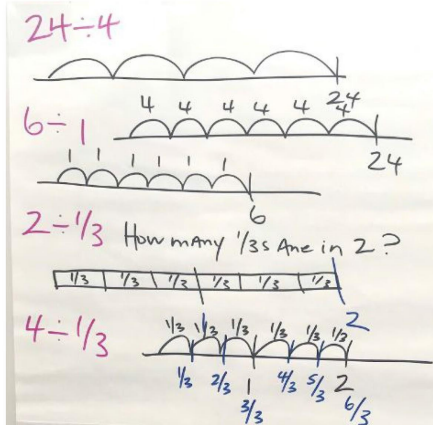 24÷4
24
4 4 4 4 4 4
6÷1
24
1 1 1 1 1 1
6
2÷1/3 How many 1/3s are in 2?
1/3 1/3 1/3 1/3 1/3 1/3
2
4÷1/3
1/3 1/3 1/3 1/3 1/3 1/3
1/3 2/3 1 4/3 5/3 2
3/3 6/3